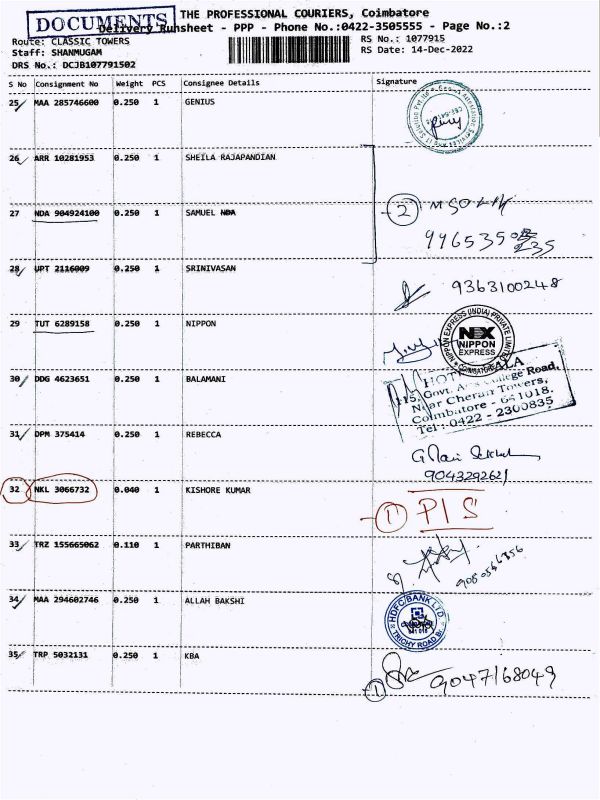 DOCUMENTS
THE PROFESSIONAL COURIERS, Coimbatore
Delivery Runsheet - PPP - Phone No.:0422-3505555 - Page No.:2
Route: CLASSIC TOWERS
RS No.: 1077915
Staff: SHANMUGAM
RS Date: 14-Dec-2022
DRS No.: DCJB107791502
S No Consignment No Weight PCS Consignee Details Signature
25 MAA 285746600 0.250 1 GENIUS
26 ARR 10281953 0.250 1 SHEILA RAJAPANDIAN
27 NDA 904924100 0.250 1 SAMUEL NDA
2
28 UPT 2116009 0.250 1 SRINIVASAN
9363100248
29 TUT 6289158 0.250 1 NIPPON
NIPPON EXPRESS (INDIA) PRIVATE LIMITED
NEX
NIPPON
EXPRESS
COIMBATORE
30 DDG 4623651 0.250 1 BALAMANI
115, Govt. Arts College Road,
Near Cheran Towers,
Coimbatore - 641018.
Tel : 0422 - 2300835
31 DPM 375414 0.250 1 REBECCA
9043292621
32 NKL 3066732 0.040 1 KISHORE KUMAR
1 P/S
33 TRZ 155665062 0.110 1 PARTHIBAN
34 MAA 294602746 0.250 1 ALLAH BAKSHI
HDFC BANK LTD
TRICHY ROAD BR
35 TRP 5032131 0.250 1 KBA
1
9047168049